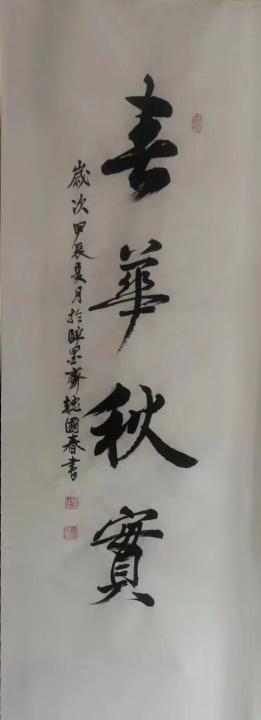 春華秋實
歲次甲辰夏月於醉墨齋魏國春書